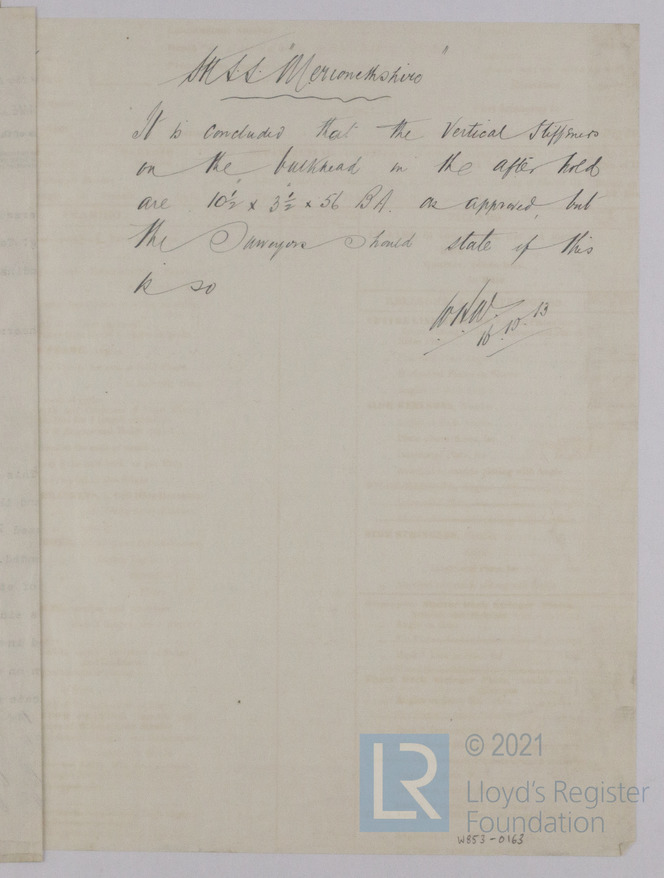 S.S. "Merionethshire"
It is concluded that the vertical stiffeners
on the bulkhead in the after hold
are 10½" x 3½" x 56 BA. as approved, but
the Surveyors should state if this
is so
16.10.13
© 2021
LR
Lloyd's Register
Foundation
W853-0163